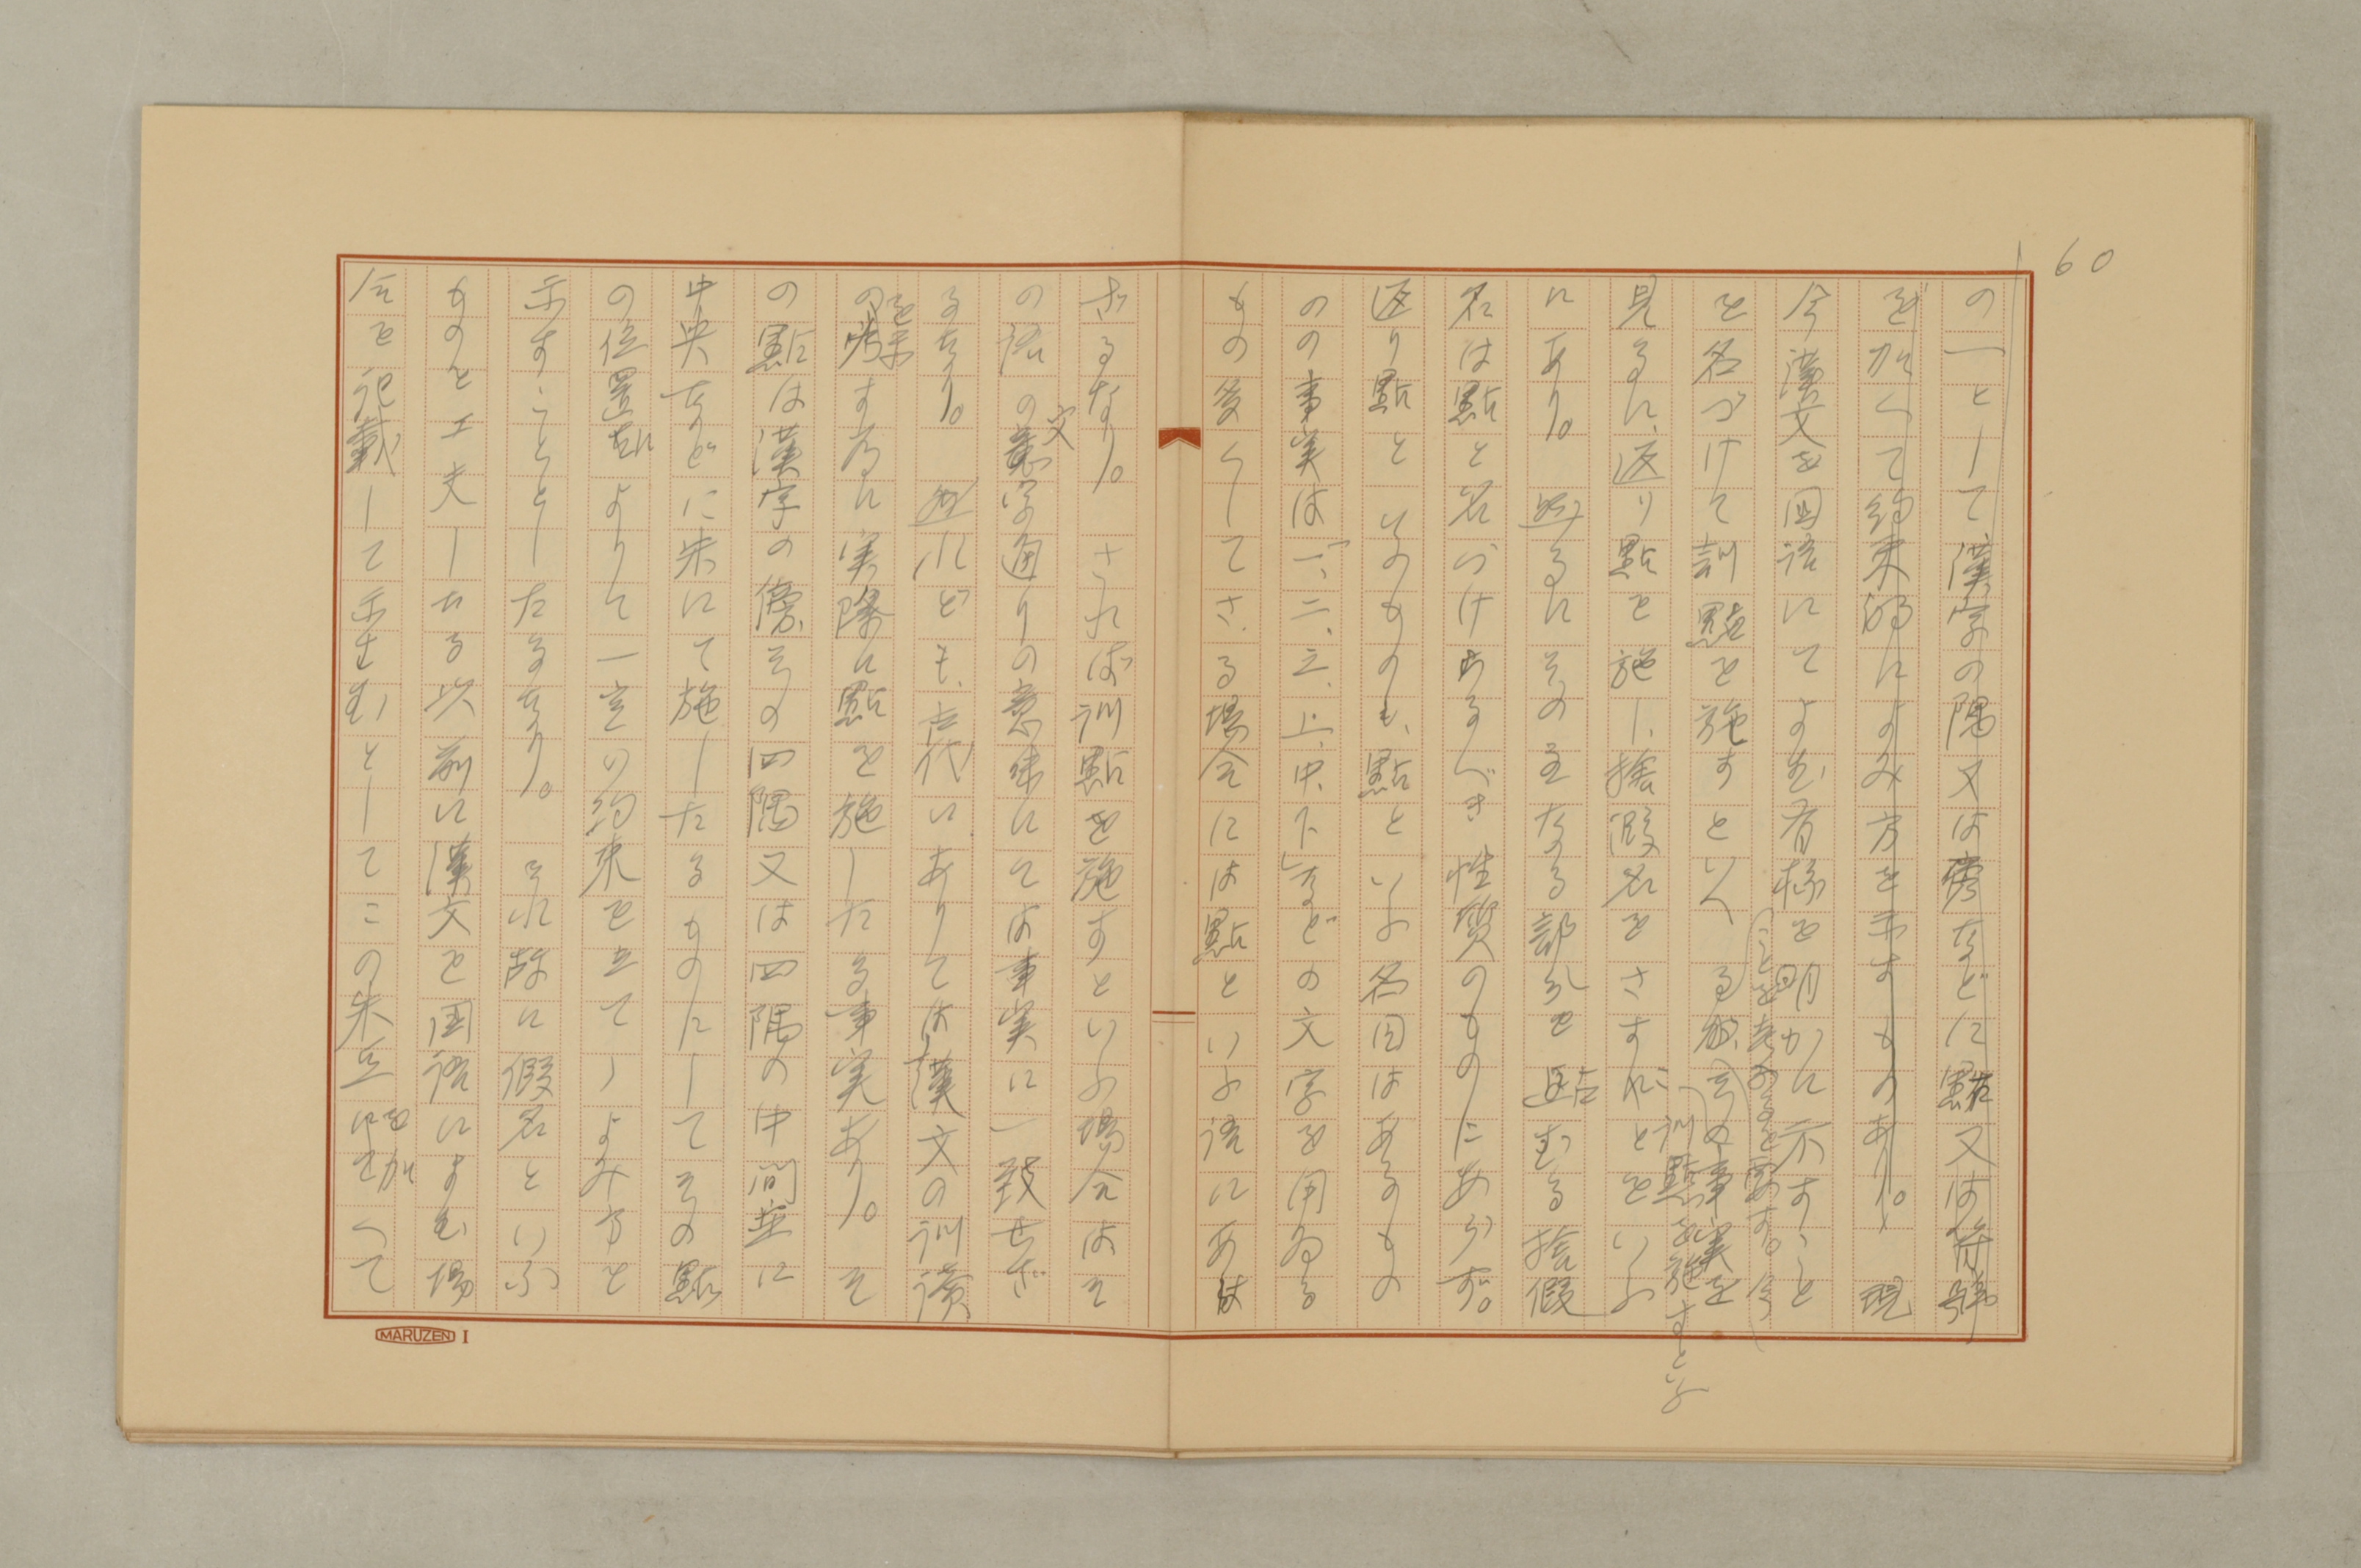 60
の一として漢字の隅又は傍などに點又は符號
を加へて約束的によみ方を示すものあり。現
今漢文を国語にてよむ有様を明かに示すこと
ことを考ふるを要す。今
を名づけて訓點を施すといへる故、その事実を
訓點を施すといふ
見るに、返り點を施し、捨假名をさすことをいふ
にあり。然るにその主なる部分を占むる捨假
名は點と名づけらるべき性質のものにあらず。
返り點といふものも、點といふ名目はあるもの
のの事実は「一、二、三、上、中、下」などの文字を用ゐる
もの多くしてさる場合には點といふ語にあは
ざるなり。されば訓點を施すといふ場合はそ
の語の文字通りの意味にては事実に一致せざ
るなり。然れども、古代にありては漢文の訓讀
を示す為に実際に點を施したる事実あり。そ
の點は漢字の傍その四隅又は四隅の中間並に
中央などに朱にて施したるものにしてその點
の位置によりて一定の約束を立ててよみ方を
示すことゝしたるなり。それ故に假名といふ
ものを工夫したる以前に漢文を国語によむ場
合を記載して示さむとしてこの朱点を加へて
MARUZEN I